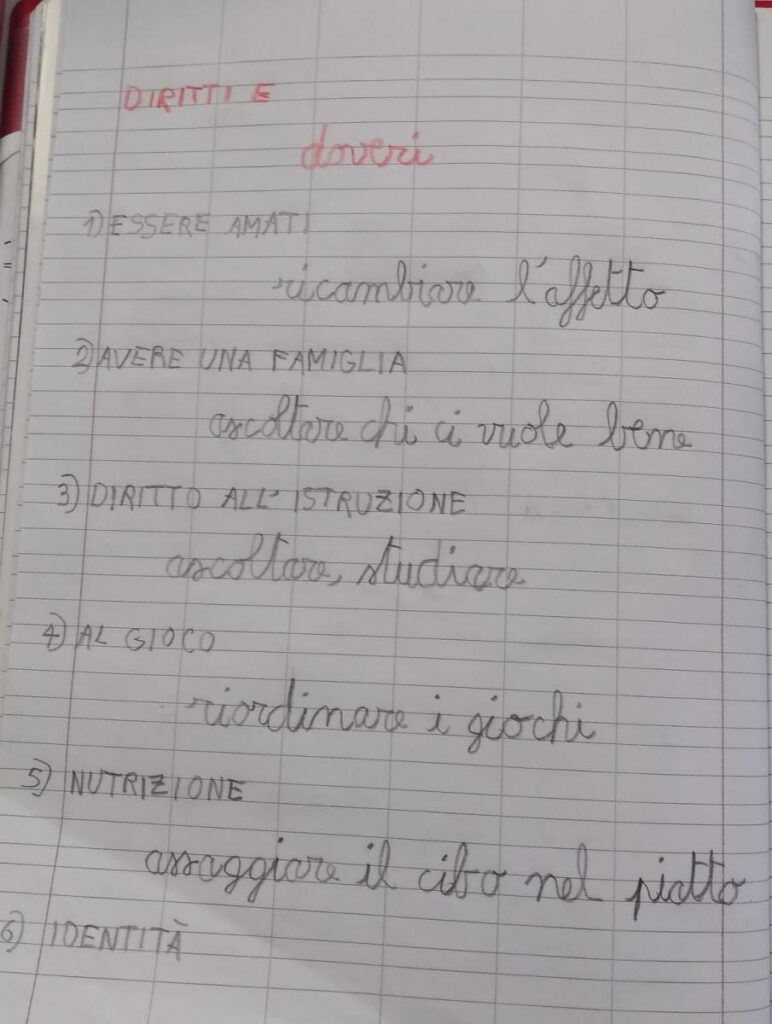 DIRITTI E
doveri
1) ESSERE AMATI
ricambiare l'affetto
2) AVERE UNA FAMIGLIA
ascoltare chi ci vuole bene
3) DIRITTO ALL'ISTRUZIONE
ascoltare, studiare
4) AL GIOCO
riordinare i giochi
5) NUTRIZIONE
assaggiare il cibo nel piatto
6) IDENTITÀ